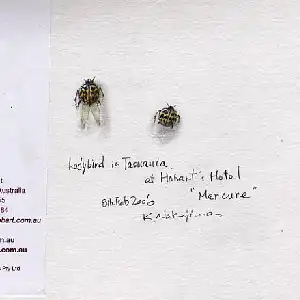 Ladybird in Tasmania
at Hobart's Hotel
"Mercure"
8th Feb 2006
t
Australia
5
84
bart.com.au
m.au
com.au
s Pty Ltd